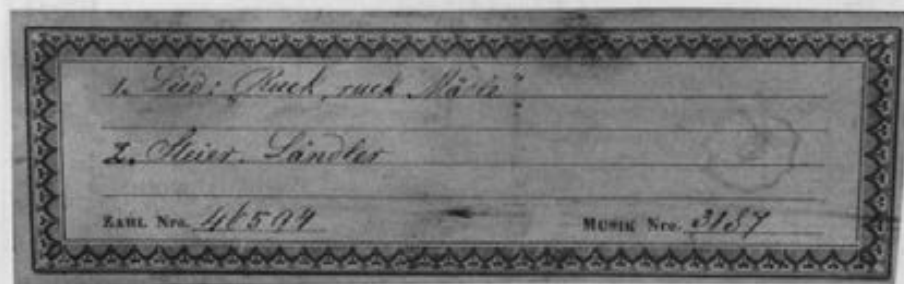 1. Lied: "Ruck, ruck Mädle"
2. Steier. Ländler
ZAHL Nro. 46594 MUSIK Nro. 3187